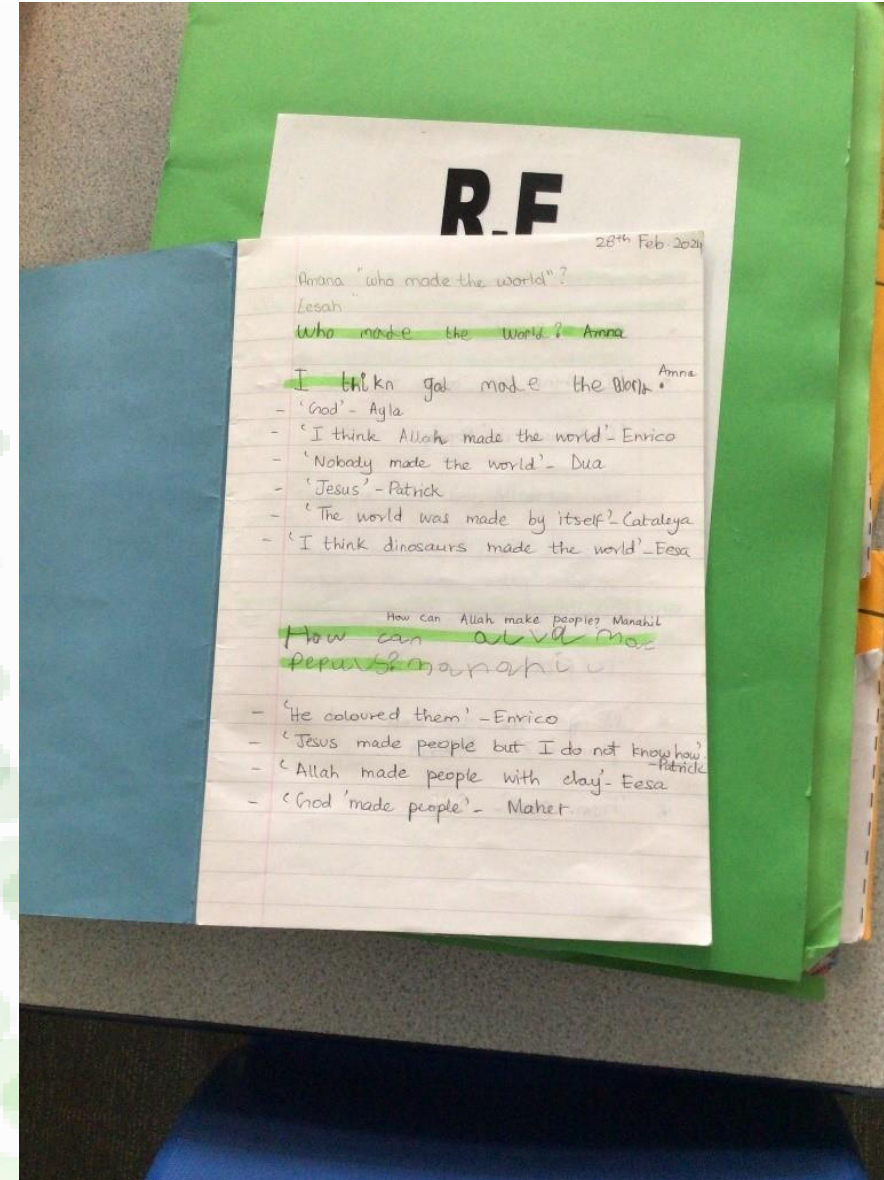 R.E
28th Feb 2024
Amana "who made the world"?
Eesah "
Who made the World? Amna
I thikn god made the World. Amna
- 'God' - Ayla
- 'I think Allah made the world' - Enrico
- 'Nobody made the world' - Dua
- 'Jesus' - Patrick
- 'The world was made by itself' - Cataleya
- 'I think dinosaurs made the world' - Eesa
How can Allah make people? Manahil
How can
pepuls? manahil
- 'He coloured them' - Enrico
- 'Jesus made people but I do not know how'.
- Patrick
- 'Allah made people with clay' - Eesa
- 'God 'made people' - Maher.